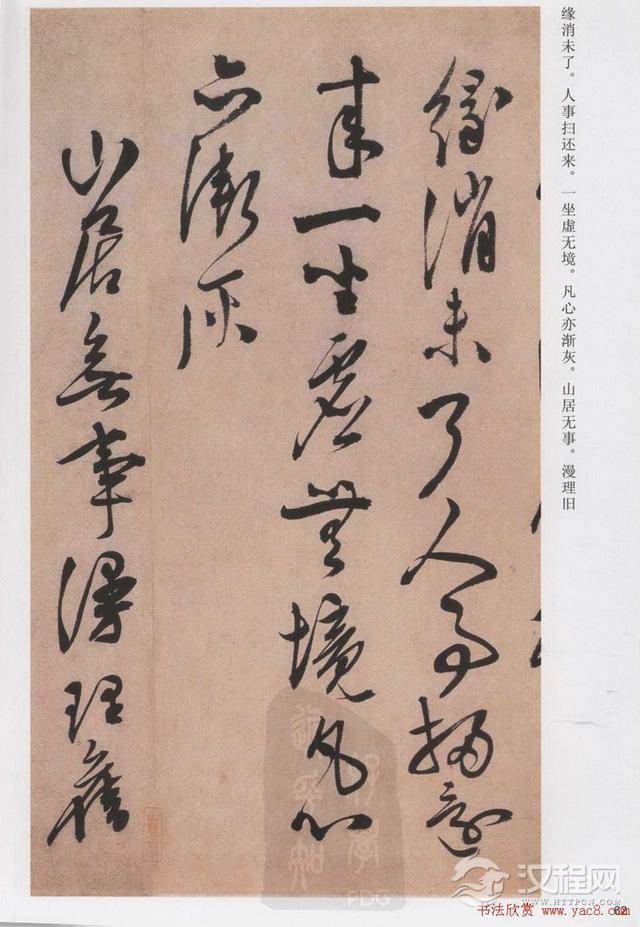 缘消未了。人事扫还来。一坐虚无境。凡心亦渐灰。山居无事。漫理旧
緣消未了人事掃還
来一坐虚無境凡心
亦漸灰
山居無事漫理舊
PDG
汉程网
HTTPCN.COM
62
书法欣赏 www.yac8.com